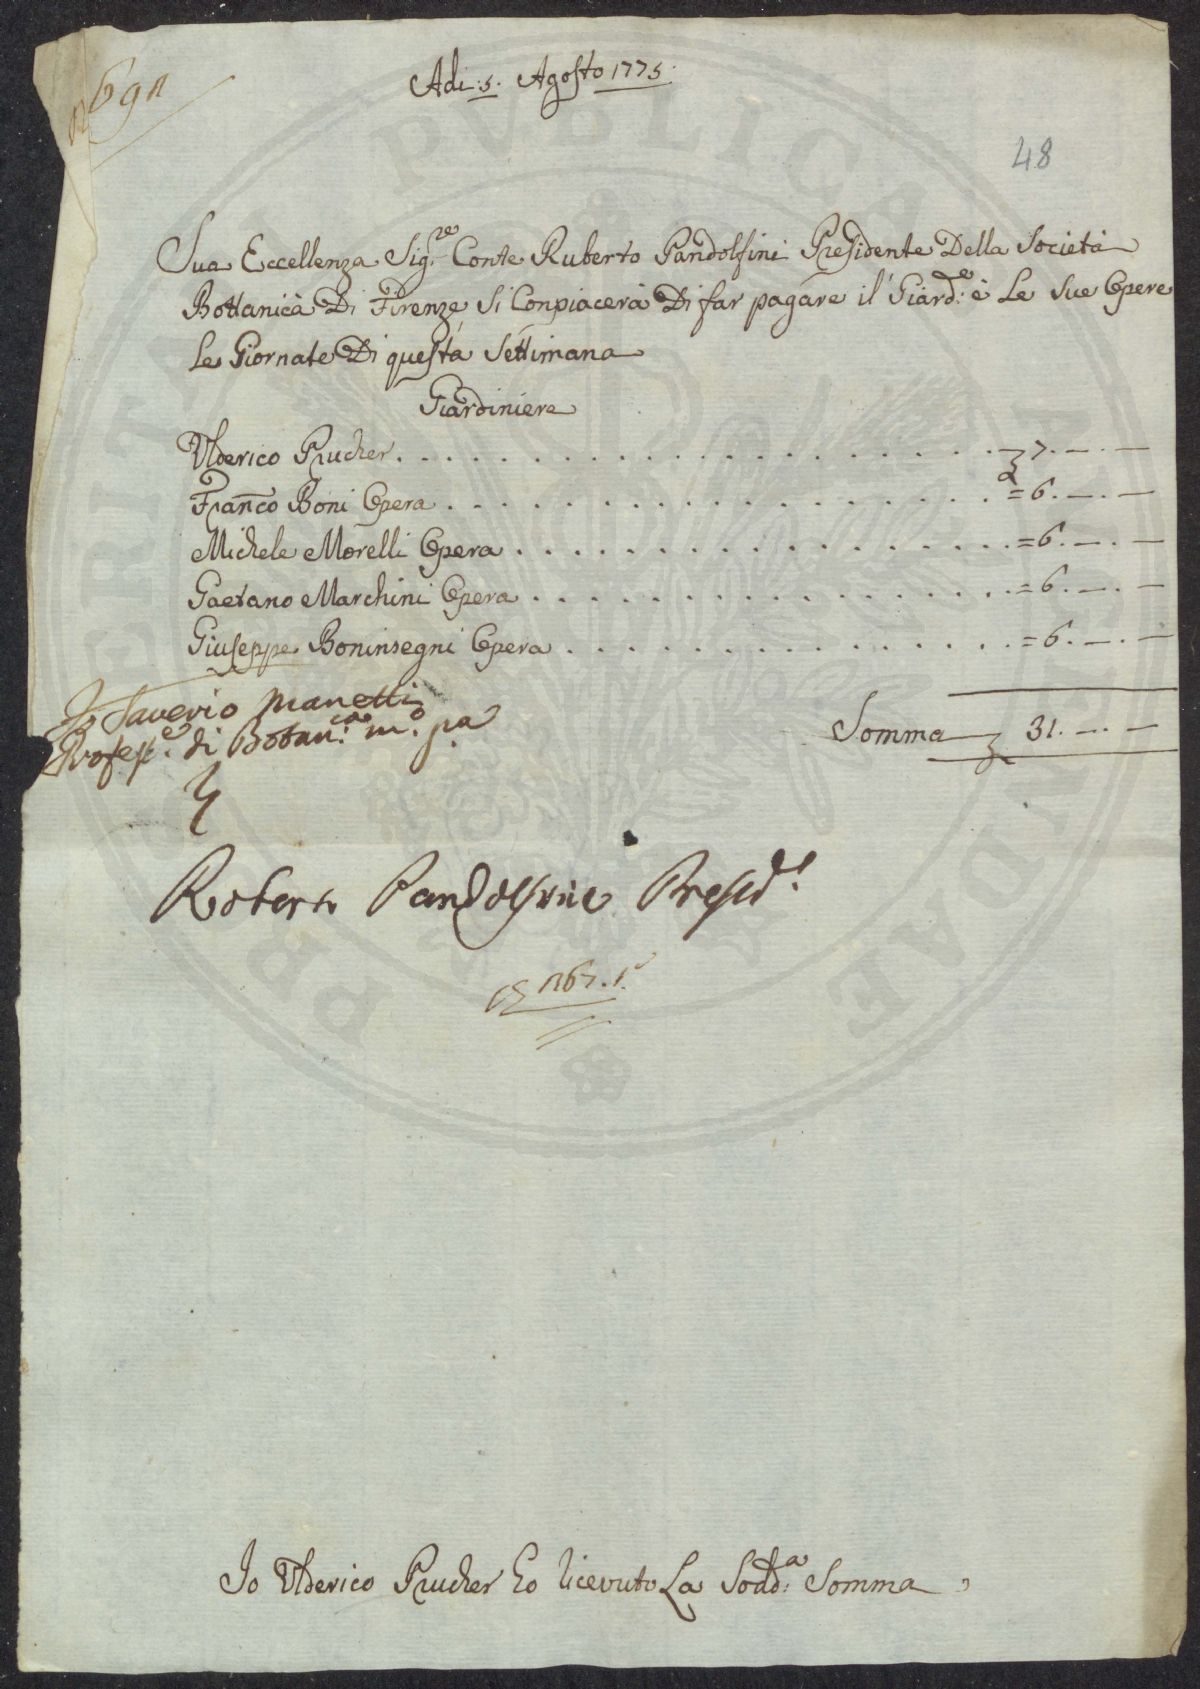 Adi: 5. Agosto 1775.
48
Sua Eccellenza Sig.re Conte Ruberto Pandolfini Presidente Della Società
Bottanica Di Firenze si Conpiacerà Di far pagare il Giard.e è Le sue Opere
Le Giornate Di questa Settimana
Giardiniere
Ulderico Prucher . . . . . . . . . . 7. — . —
Franco Boni Opera . . . . . . . . . . = 6. — . —
Michele Morelli Opera . . . . . . . . . . = 6. — . —
Gaetano Marchini Opera . . . . . . . . . . = 6. — . —
Giuseppe Boninsegni Opera . . . . . . . . . . = 6. — . —
Somma 31. — . —
Io Saverio Manetti
Profess.e di Botan.ca m.o pa
Roberto Pandolfini Presid.e
Io Ulderico Prucher ho licevuto La Sodd.a Somma
PERITATI PVBLICAE